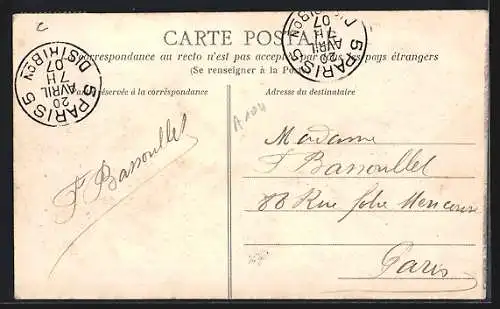 C
CARTE POSTALE
La correspondance au recto n'est pas acceptée par tous les pays étrangers
(Se renseigner à la Poste)
PARIS 5
7H
20
AVRIL
07
DISTRIBON
PARIS 5
7H
20
AVRIL
07
Partie réservée à la correspondance
Adresse du destinataire
A 104
F Bassoullet
Madame
F Bassoullet
88 Rue Folie Mericourt
Paris